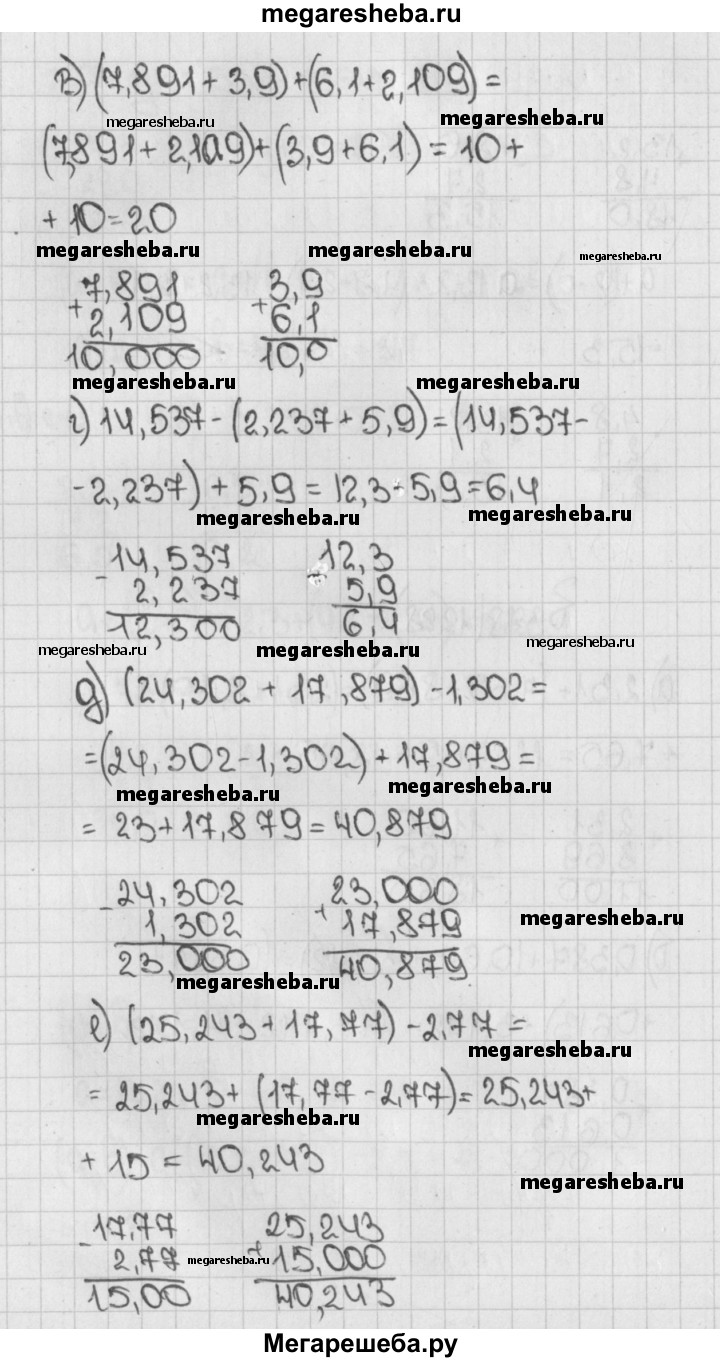 megaresheba.ru
в) (7,891 + 3,9) + (6,1 + 2,109) =
megaresheba.ru megaresheba.ru
(7,891 + 2,109) + (3,9 + 6,1) = 10 +
+ 10 = 20
megaresheba.ru megaresheba.ru megaresheba.ru
7,891 3,9
+ 2,109 + 6,1
10,000 10,0
megaresheba.ru megaresheba.ru
г) 14,537 - (2,237 + 5,9) = (14,537 -
- 2,237) + 5,9 = 12,3 - 5,9 = 6,4
megaresheba.ru megaresheba.ru
14,537 12,3
- 2,237 - 5,9
12,300 6,4
megaresheba.ru megaresheba.ru megaresheba.ru
д) (24,302 + 17,879) - 1,302 =
= (24,302 - 1,302) + 17,879 =
megaresheba.ru megaresheba.ru
= 23 + 17,879 = 40,879
24,302 23,000
- 1,302 + 17,879
megaresheba.ru
23,000 40,879
megaresheba.ru
е) (25,243 + 17,77) - 2,77 =
megaresheba.ru
= 25,243 + (17,77 - 2,77) = 25,243 +
megaresheba.ru
+ 15 = 40,243
megaresheba.ru
17,77 25,243
- 2,77 + 15,000
megaresheba.ru megaresheba.ru
15,00 40,243
Мегарешеба.ру